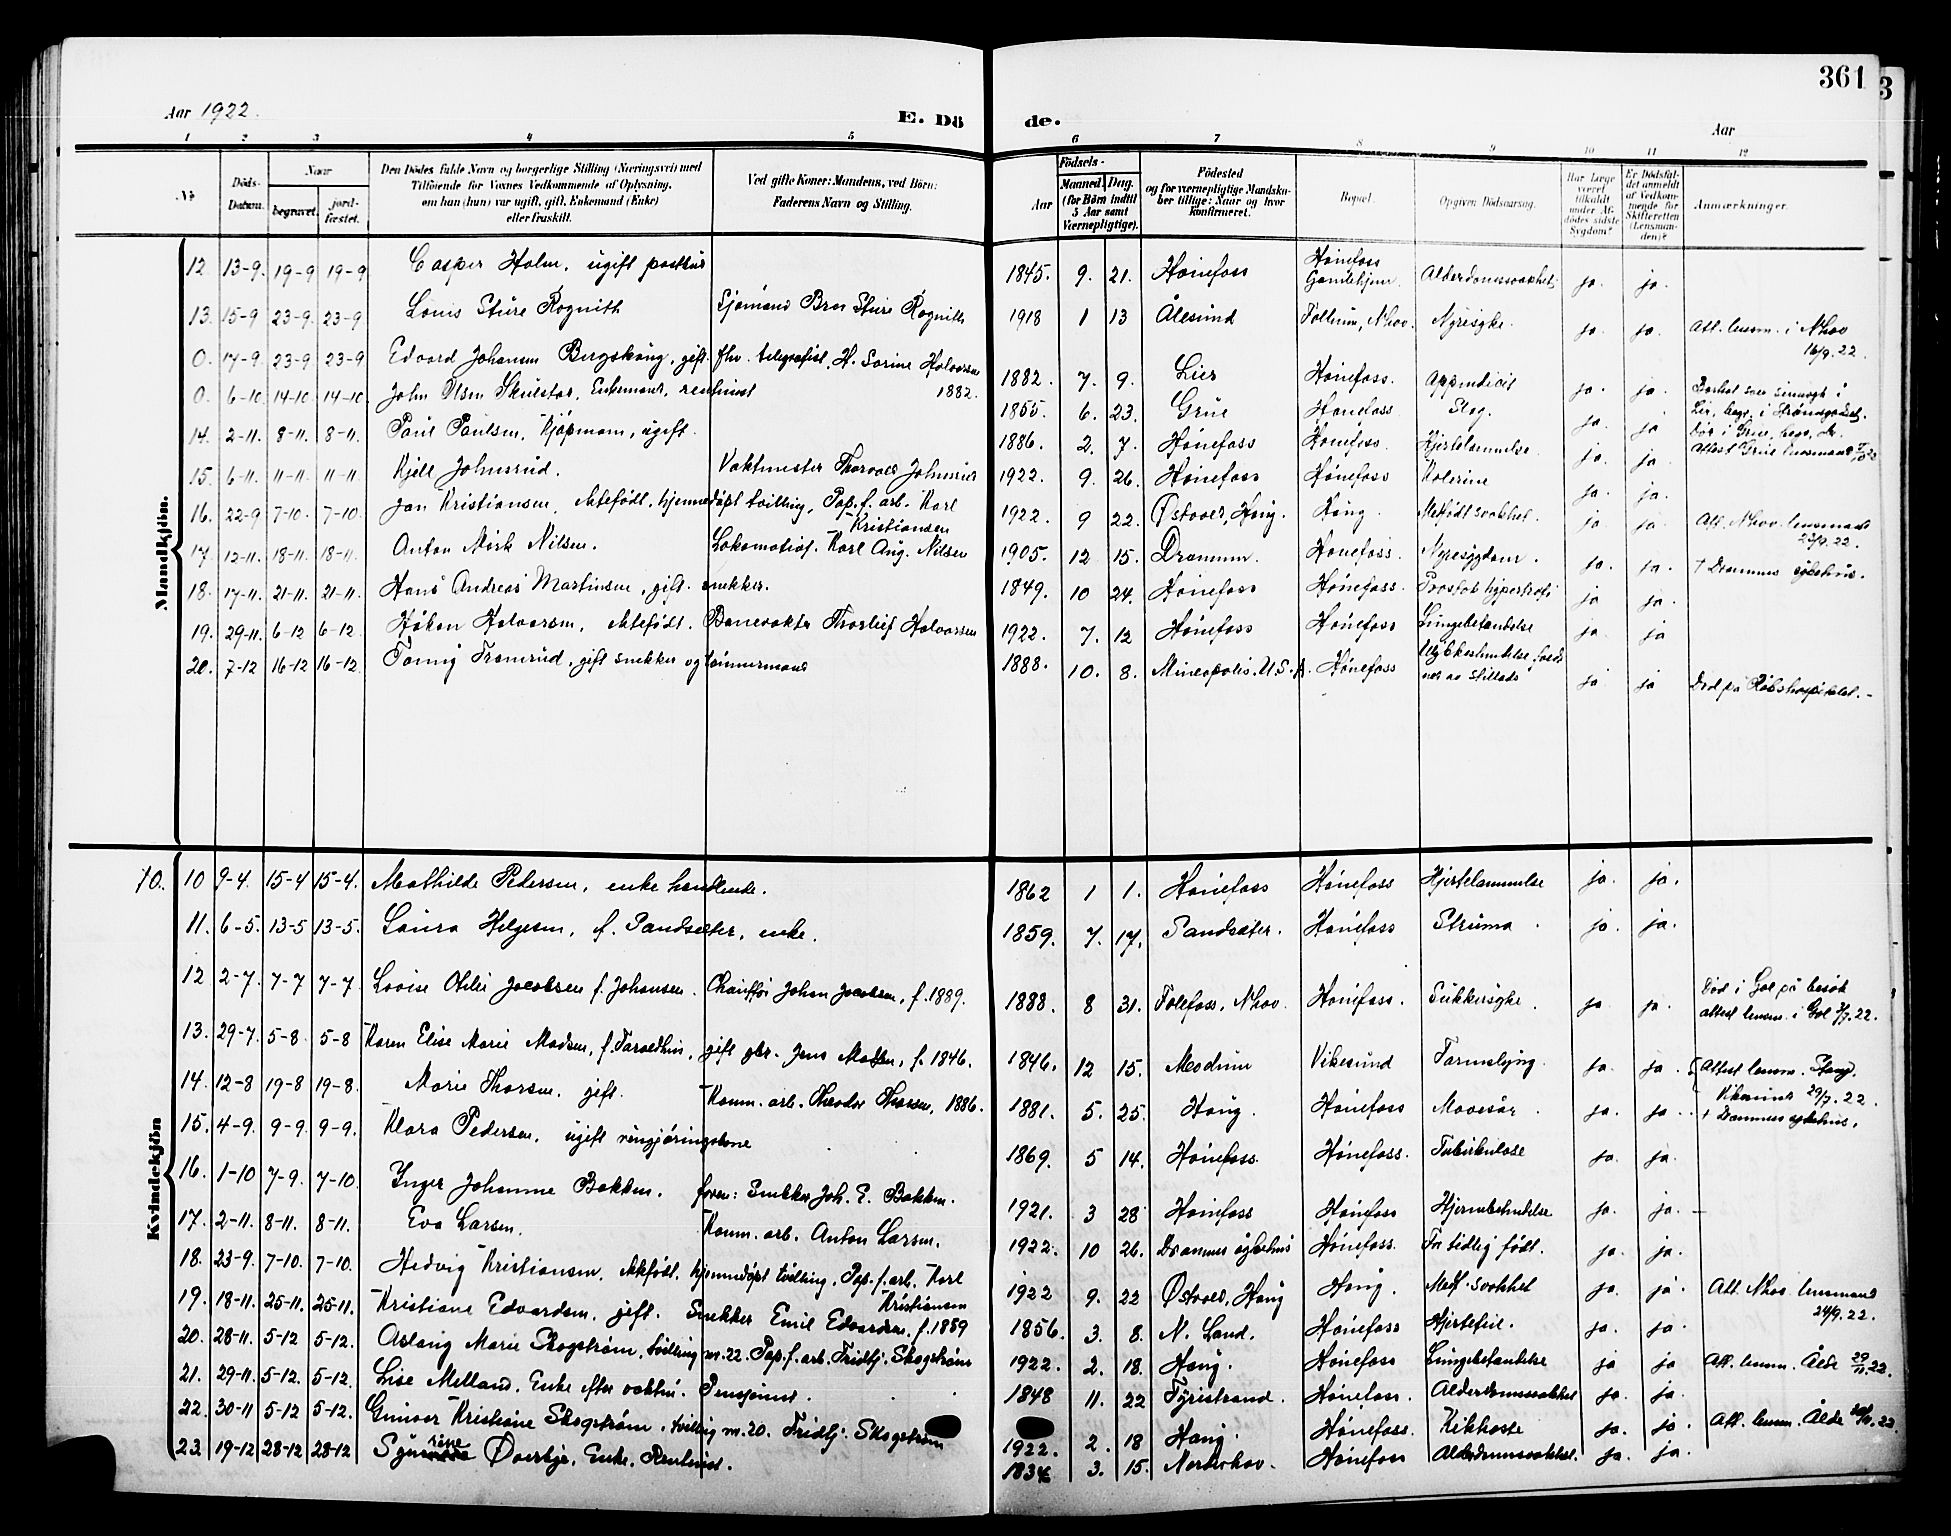 361
3
Aar 1922.
E. Dö
de.
Aar
1 2 3 4 5 6 7 8 9 10 11 12
No.
Döds-Datum.
Naar
begravet.
jord-fæstet.
Den Dödes fulde Navn og borgerlige Stilling (Næringsvei) med
Tilföiende for Voxnes Vedkommende af Oplysning,
om han (hun) var ugift, gift, Enkemand (Enke)
eller fraskilt.
Ved gifte Koner: Mandens, ved Börn:
Faderens Navn og Stilling.
Födsels-
Aar
Maaned. Dag.
(for Börn indtil
5 Aar samt
Værnepligtige).
Födested
og for værnepligtige Mandskaber tillige: Naar og hvor
konfirmeret.
Bopæl.
Opgiven Dödsaarsag.
Har Læge været tilkaldt under Afdödes sidste Sygdom?
Er Dödsfaldet anmeldt af Vedkommende for Skifteretten (Lensmanden)?
Anmærkninger.
Mandkjön.
12 13-9. 19-9 19-9 Casper Holm, ugift 1845. 9. 21. Hönefoss Hönefoss Gamlehjem Alderdomssvakhet ja. ja.
13. 15-9 23-9. 23-9 Louis Sture Rognith Sjömand Sture Rognith 1918 1 13 Ålesund Follum, Nhov. Nyresyke. ja ja. Att. lensm. i Nhov 16/9. 22.
0. 17-9. 23-9 23-9 Edvard Johansen gift. fhv. telegrafist, H. Sorine Halvorsen 1882. 1882. 7. 9. Lier Hönefoss. Appendicit ja. ja.
0. 6-10 14-10 14-10 John Olsen Skulstor, Enkemand, rentenist 1855. 6. 23. Grue Hönefoss Slag. ja. ja
14. 2-11. 8-11. 8-11. Paul Paulsen, Kjöpmann, ugift. 1886. 2. 7. Hönefoss Hönefoss. Hjertelammelse ja. ja.
15. 6-11. 11-11 11-11 Kjell Johnsrud. Vaktmester Thorvald Johnsrud 1922. 9. 26. Hönefoss Hönefoss Kolerine ja. ja.
16. 22-9 7-10. 7-10. Jan Kristiansen, Aktefödt, hjemmedöpt tvilling, Pap. f. arb. Karl Kristiansen 1922. 9 22. Östvold, Haug. Haug. Medfödt svakhet. ja ja. Att. Nhov. lensmand 23/9. 22.
17. 12-11. 18-11. 18-11. Anton Mörk Nilsen. Lokomotivf. Karl Aug. Nilsen 1905. 12 15. Drammen. Hönefoss. Nyresygdom. ja. ja. † Drammens sykehus.
18. 17-11. 21-11. 21-11. Hans Andreas Martinsen, gift. snekker. 1849. 10 24. Hönefoss Hönefoss. Prostathypertrofi ja ja.
19. 29-11. 6-12 6-12. Håkon Halvorsen, Aktefödt. Banevakte Thorleif Halvorsen 1922. 7. 12 Hönefoss Hönefoss Lungebetændelse ja. ja
20. 7-12 16-12 16-12. gift snekker og tömmermand 1888. 10. 8. Mineapolis. U.S.A. Hönefoss ja ja Död på Rikshospitalet.
Kvindekjön
10. 10 9-4. 15-4 15-4. Mathilde Pedersen, enke handlende. 1862 1 1. Hönefoss Hönefoss Hjertelammelse ja. ja.
11. 6-5. 13-5 13-5. Laura Helgesen, f. Sandsæter, enke. 1859. 7. 17. Sandsæter. Hönefoss Struma. ja. ja.
12 2-7. 7-7 7-7. Lovise Jacobsen f. Johansen. Chaufför Johan Jacobsen, f. 1889. 1888. 8 31. Nhov. Hönefoss. Sukkersyke. ja ja. Död i Gol på besök attest lensm. i Gol 3/7. 22.
13. 29-7. 5-8 5-8 Karen Elise Marie Madsen, gift gbr. Jens Madsen, f. 1846. 1846. 12 15. Modum Vikesund Tarmslyng. ja. ja. Attest lensm. Vikesund 29/7. 22.
14. 12-8 19-8 19-8. Marie Thorsen, gift. Komm. arb. Theodor Thorsen, 1886. 1881. 5. 25. Haug. Hönefoss Mavesår. ja. ja. † Drammens sykehus.
15. 4-9. 9-9. 9-9. Klara Pedersen, ugift rengjöringskone 1869. 5 14. Hönefoss. Hönefoss. Tuberkulose ja. ja.
16. 1-10 7-9. 7-10. Inger Johanne Bakken. foren: Snekker Joh. E. Bakken. 1921. 3 28 Hönefoss Hönefoss Hjernebetændelse ja. ja.
17. 2-11. 8-11. 8-11. Eva Larsen. Komm. arb. Anton Larsen. 1922. 10 26. Drammens sykehus Hönefoss. For tidlig födt. ja. ja.
18. 23-9. 7-10. 7-10. Hedvig Kristiansen, Aktfödt, hjemmedöpt tvilling, Pap. f. arb. Karl Kristiansen 1922 9. 22 Östvold, Haug Haug. Medf. svakhet ja. ja. Att. Nhov. lensmand 24/9. 22.
19. 18-11. 25-11. 25-11. Kristiane Edvardsen, gift. Snekker Emil Edvardsen, f. 1859 1856. 3. 8. N. Land. Hönefoss Hjertefeil. ja. ja.
20. 28-11. 5-12 5-12. Aslaug Marie Skogström, tvilling m. 22. Pap. f. arb. Fridtj. Skogström 1922. 2. 18. Haug. Hönefoss Lungebetændelse ja ja Att. lensm. Ålde 29/11. 22.
21. 29-11. 5-12. 5-12. Lise Melland, Enke efter Pensjonist. 1848 11. 22 Tyristrand. Hönefoss. Alderdomssvakhet ja. ja.
22. 30-11 5-12 5-12. Gunvor Kristiane Skogström, tvilling m. 20. Fridtj. Skogström 1922. 2. 18 Haug. Hönefoss. Kikhoste ja. ja. Att. lensm. Ålde 22.
23. 19-12 28-12 28-12 Överbye, Enke, Rentenist. 1834 3. 15. Norderhov. Hönefoss Alderdomssvakhet. ja. ja.